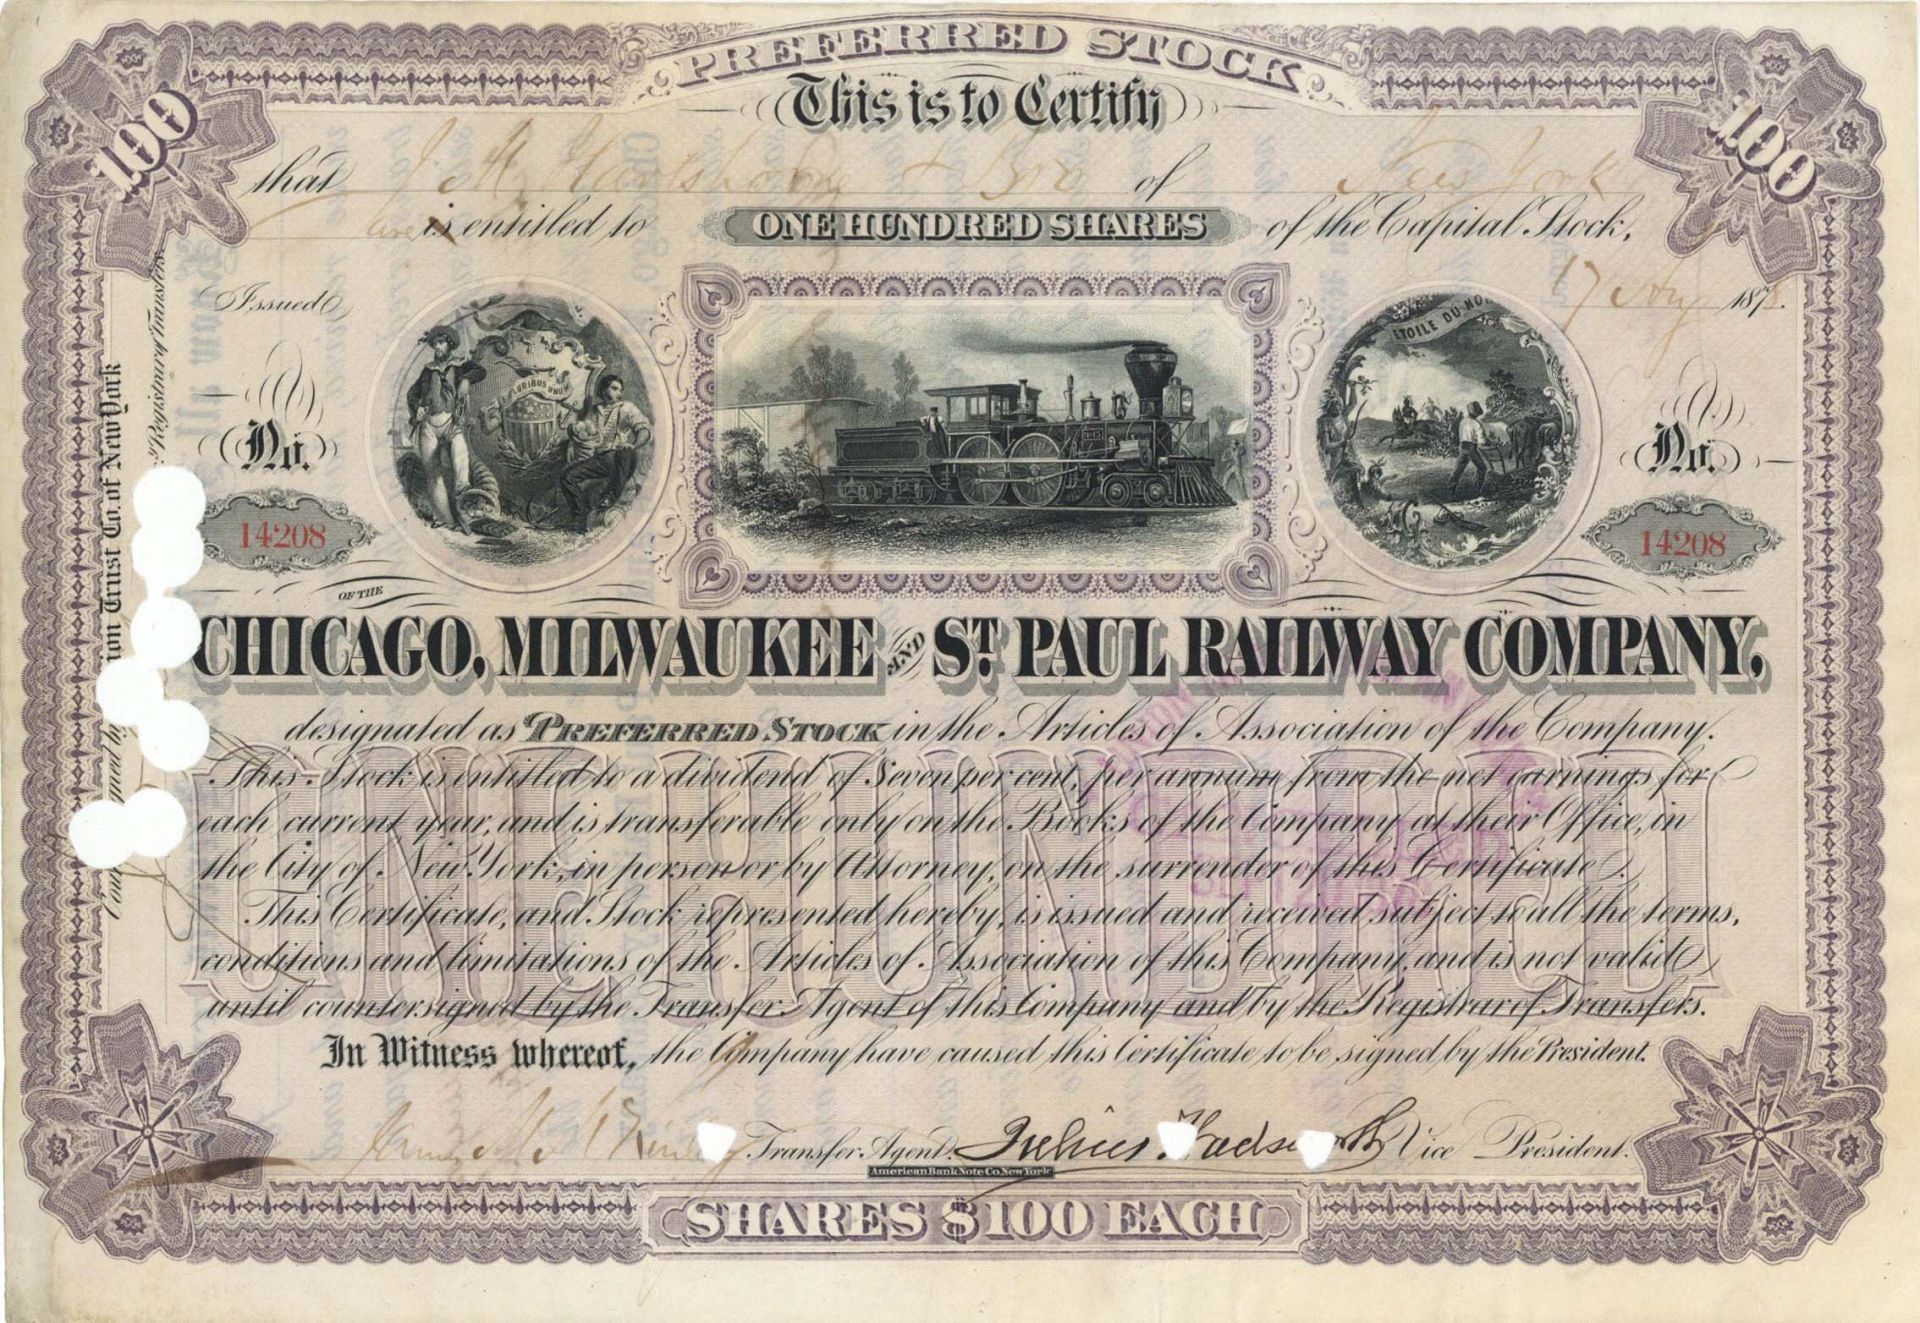 PREFERRED STOCK
This is to Certify
100
100
that J. M. Hartshorne & Bro of New York
are is entitled to ONE HUNDRED SHARES of the Capital Stock,
Issued
17 Aug 1878.
E PLURIBUS UNUM
ETOILE DU NO
No.
No.
14208
14208
OF THE
CHICAGO, MILWAUKEE AND ST. PAUL RAILWAY COMPANY,
designated as PREFERRED STOCK in the Articles of Association of the Company.
This Stock is entitled to a dividend of Seven per cent, per annum from the net earnings for
each current year, and is transferable only on the Books of the Company at their Office, in
the City of New York, in person or by Attorney, on the surrender of this Certificate.
This Certificate, and Stock represented hereby, is issued and received subject to all the terms,
conditions and limitations of the Articles of Association of this Company, and is not valid
until countersigned by the Transfer Agent of this Company and by the Registrar of Transfers.
ONE HUNDRED
In Witness whereof, the Company have caused this Certificate to be signed by the President.
Transfer Agent. Julius Wadsworth Vice President.
American Bank Note Co. New York
SHARES $100 EACH
ion Trust Co. of New York
Registrar of Transfers